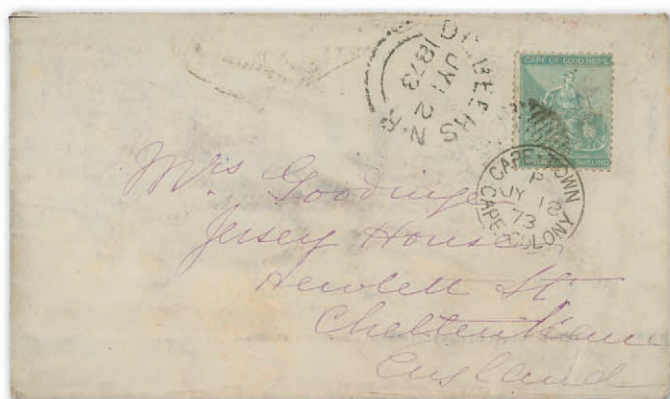 DE BEERS N.R
JY 12
1873
CAPE OF GOOD HOPE
SHILLING
CAPE TOWN
P
JY 18
73
CAPE COLONY
Mrs Goodinge
Jersey House
Hewlett St
Cheltenham
England